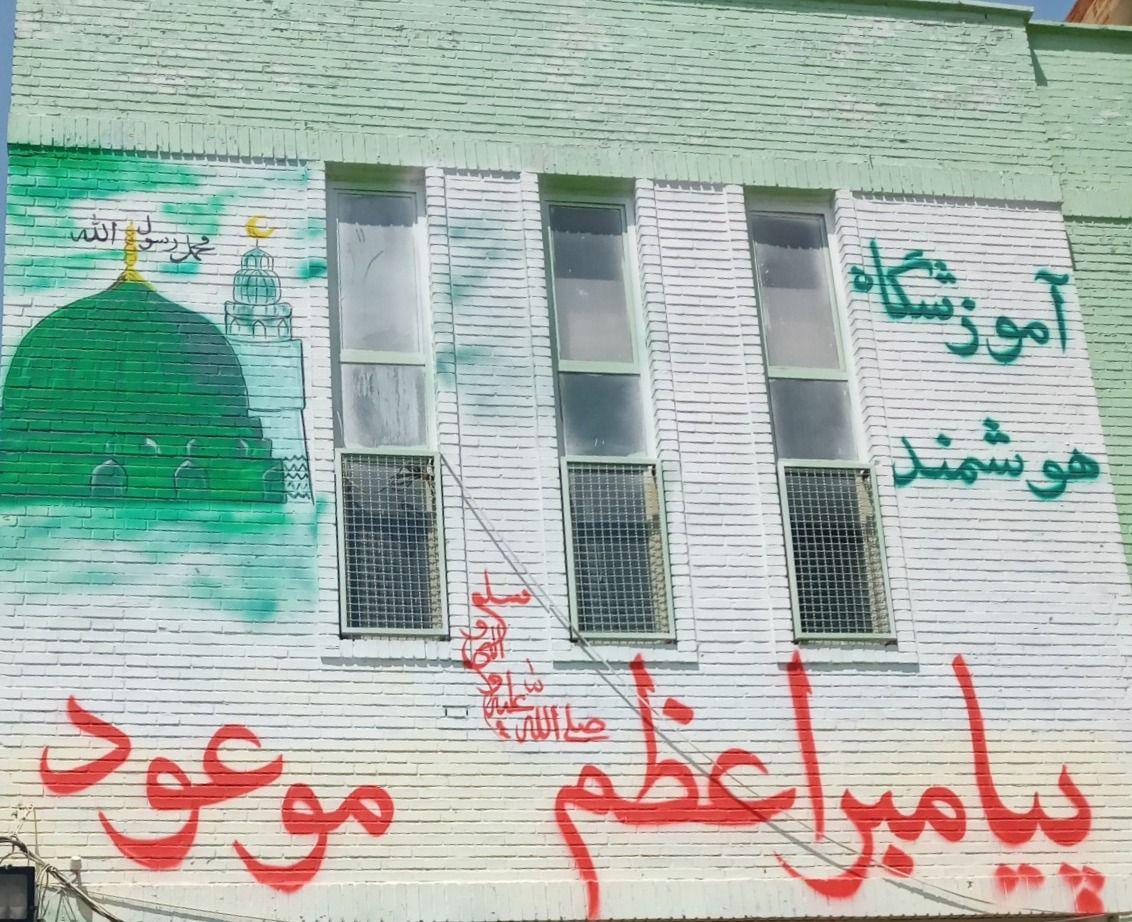 محمد رسول الله
آموزشگاه
هوشمند
صلی الله علیه و آله و سلم
پیامبر اعظم موعود